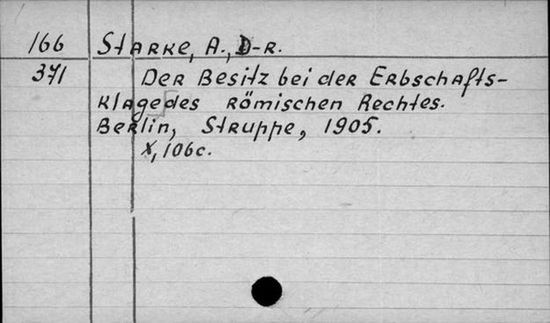 166 Starke, A., D-r.
371 Der Besitz bei der Erbschafts-
klage des Römischen Rechtes.
Berlin, Struppe, 1905.
X, 106 c.